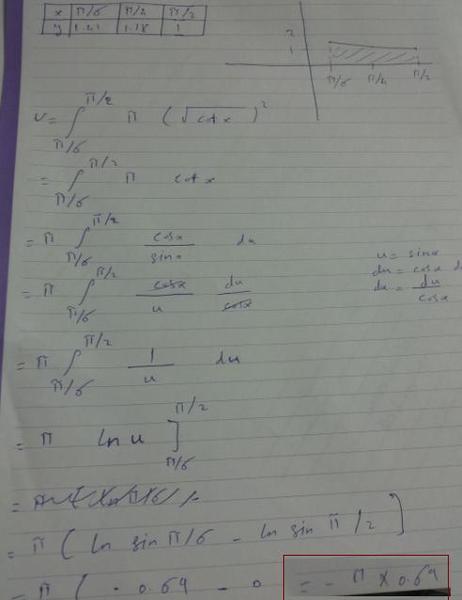 x π/6 π/2 π/2
y 1.21 1.18 1
2
1
π/6 π/2 π/2
V = ∫ π/6 π/2 π (√cot x)²
= ∫ π/6 π/2 π cot x
= π ∫ π/6 π/2 cosx / sinx dx
u = sinx
du = cosx dx
dx = du / cosx
= π ∫ π/6 π/2 cosx / u du / cosx
= π ∫ π/6 π/2 1 / u du
= π ln u ] π/6 π/2
= π ( ln sin π/6 - ln sin π/2 ]
= π ( - 0.69 - 0 = - π x 0.69